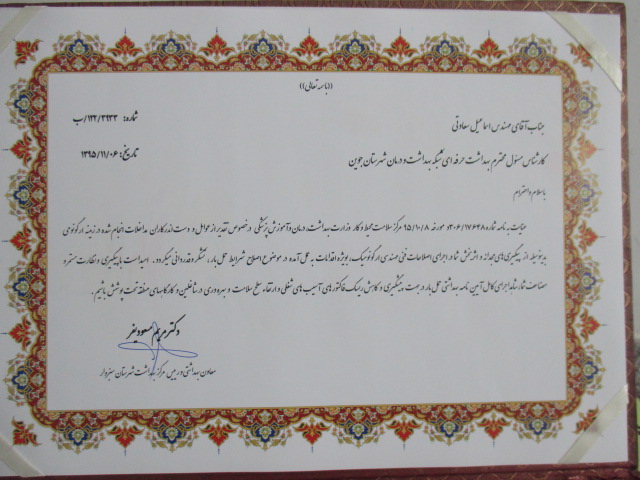 ((باسمه تعالی))
شماره: ۱۲۲/۳۹۳۳/ب
جناب آقای مهندس اسماعیل سعادتی
تاریخ: ۱۳۹۵/۱۱/۰۶
کارشناس مسئول محترم بهداشت حرفه ای شبکه بهداشت و درمان شهرستان جوین
باسلام و احترام
عنایت به نامه شماره ۳۰۶/۱۷۶۴۸ مورخه ۹۵/۱۰/۸ مرکز سلامت محیط و کار وزارت بهداشت، درمان و آموزش پزشکی در خصوص تقدیر از عوامل و دست اندرکاران مداخلات انجام شده در زمینه ارگونومی
بدینوسیله از پیگیری های مجدانه و اثر بخش شما در اجرای اصلاحات فنی مهندسی ارگونومیک، بویژه اقدامات به عمل آمده در موضوع اصلاح شرایط حمل بار، تشکر و قدردانی میگردد. امید است با پیگیری و نظارت مستمر و
مضاعف شما، شاهد اجرای کامل آیین نامه بهداشتی حمل بار در جهت پیشگیری و کاهش ریسک فاکتورهای آسیب های شغلی و ارتقاء سطح سلامت و بهره وری در شاغلین و کارگاههای منطقه تحت پوشش باشیم.
دکتر مریم مسعودیفر
معاون بهداشتی و رییس مرکز بهداشت شهرستان سبزوار